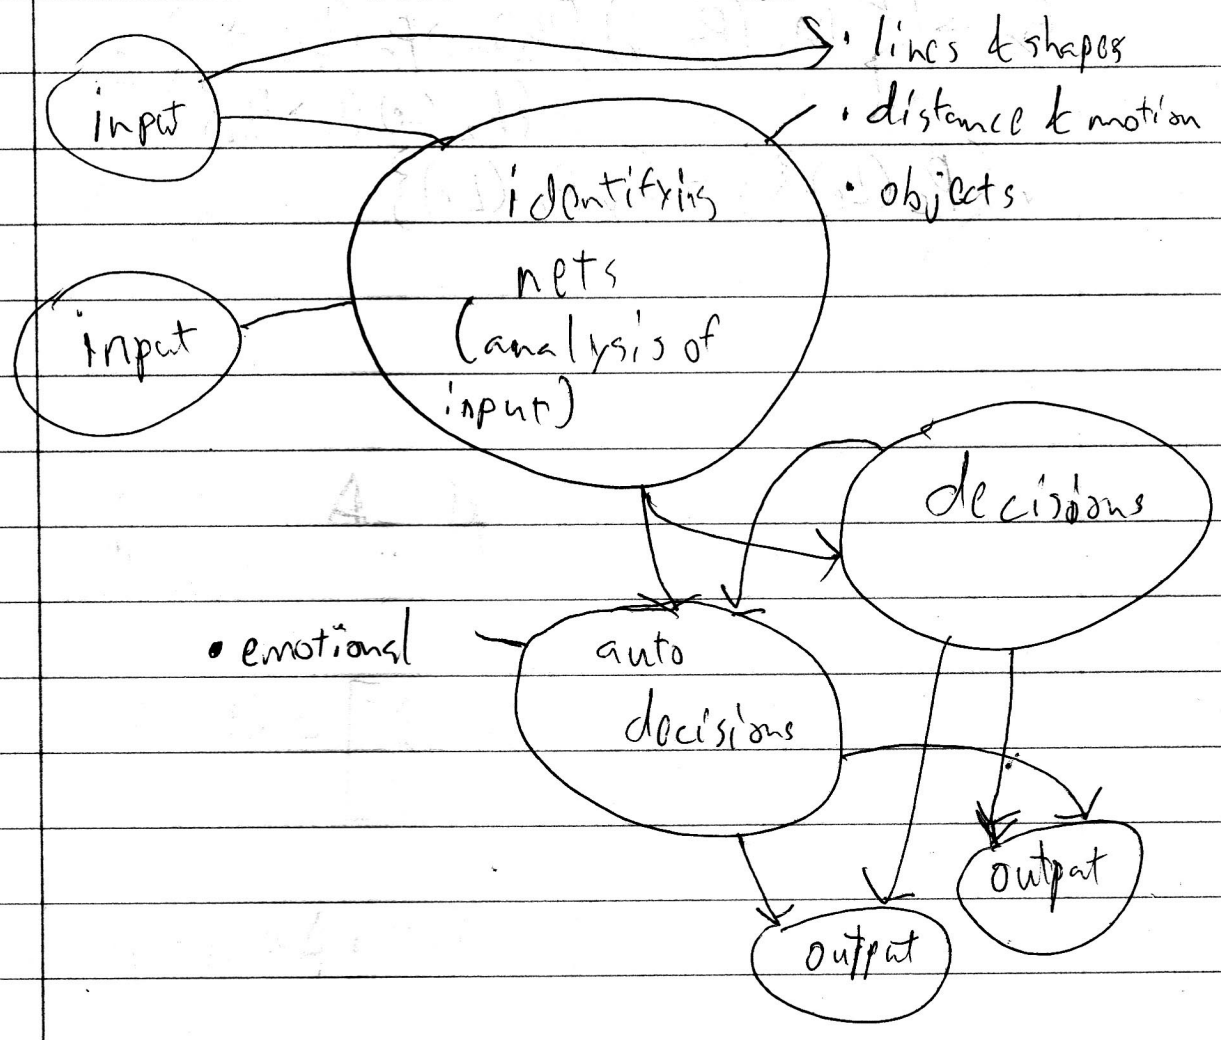 input
• lines & shapes
• distance & motion
• objects
identifying
nets
(analysis of
input)
input
decisions
• emotional
auto
decisions
output
output